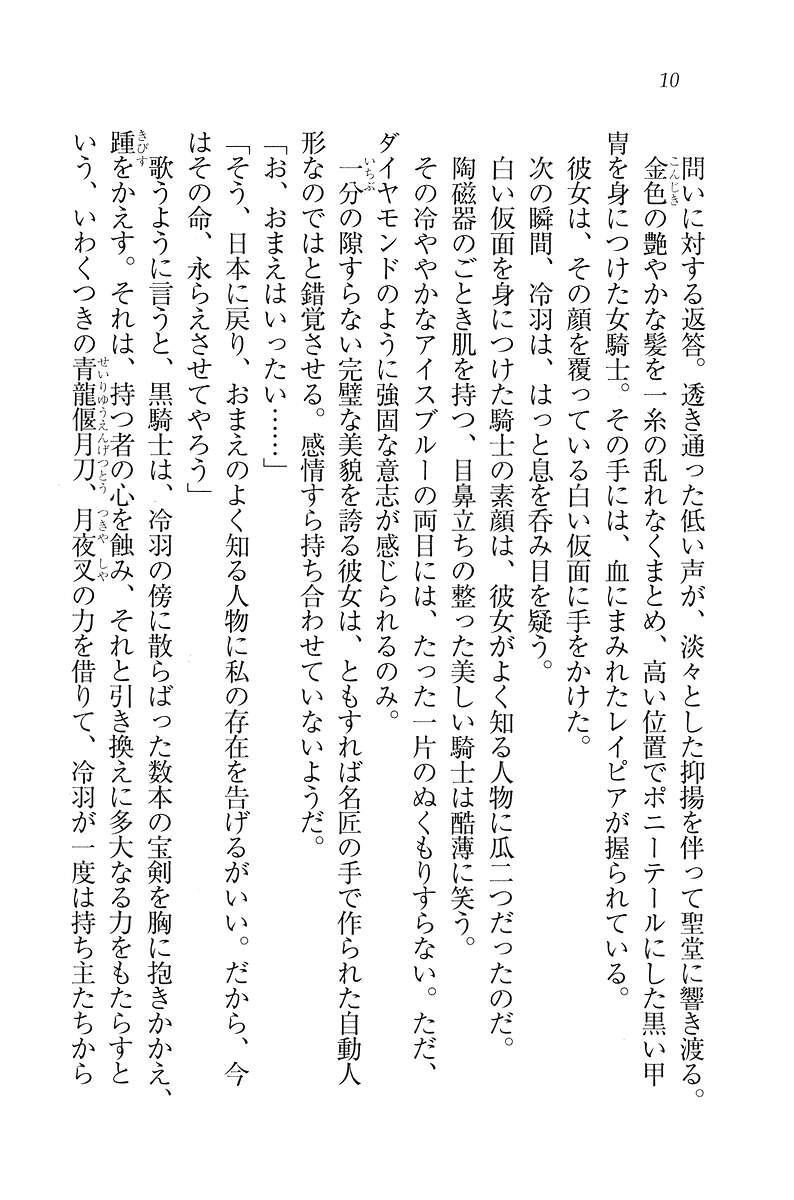 10
問いに対する返答。透き通った低い声が、淡々とした抑揚を伴って聖堂に響き渡る。
金色の艶やかな髪を一糸の乱れなくまとめ、高い位置でポニーテールにした黒い甲
冑を身につけた女騎士。その手には、血にまみれたレイピアが握られている。
彼女は、その顔を覆っている白い仮面に手をかけた。
次の瞬間、冷羽は、はっと息を呑み目を疑う。
白い仮面を身につけた騎士の素顔は、彼女がよく知る人物に瓜二つだったのだ。
陶磁器のごとき肌を持つ、目鼻立ちの整った美しい騎士は酷薄に笑う。
その冷ややかなアイスブルーの両目には、たった一片のぬくもりすらない。ただ、
ダイヤモンドのように強固な意志が感じられるのみ。
一分の隙すらない完璧な美貌を誇る彼女は、ともすれば名匠の手で作られた自動人
形なのではと錯覚させる。感情すら持ち合わせていないようだ。
「お、おまえはいったい……」
「そう、日本に戻り、おまえのよく知る人物に私の存在を告げるがいい。だから、今
はその命、永らえさせてやろう」
歌うように言うと、黒騎士は、冷羽の傍に散らばった数本の宝剣を胸に抱きかかえ、
踵をかえす。それは、持つ者の心を蝕み、それと引き換えに多大なる力をもたらすと
いう、いわくつきの青龍偃月刀、月夜叉の力を借りて、冷羽が一度は持ち主たちから
こんじき
いちぶ
きびす
せいりゆうえんげつとう
つきや しや